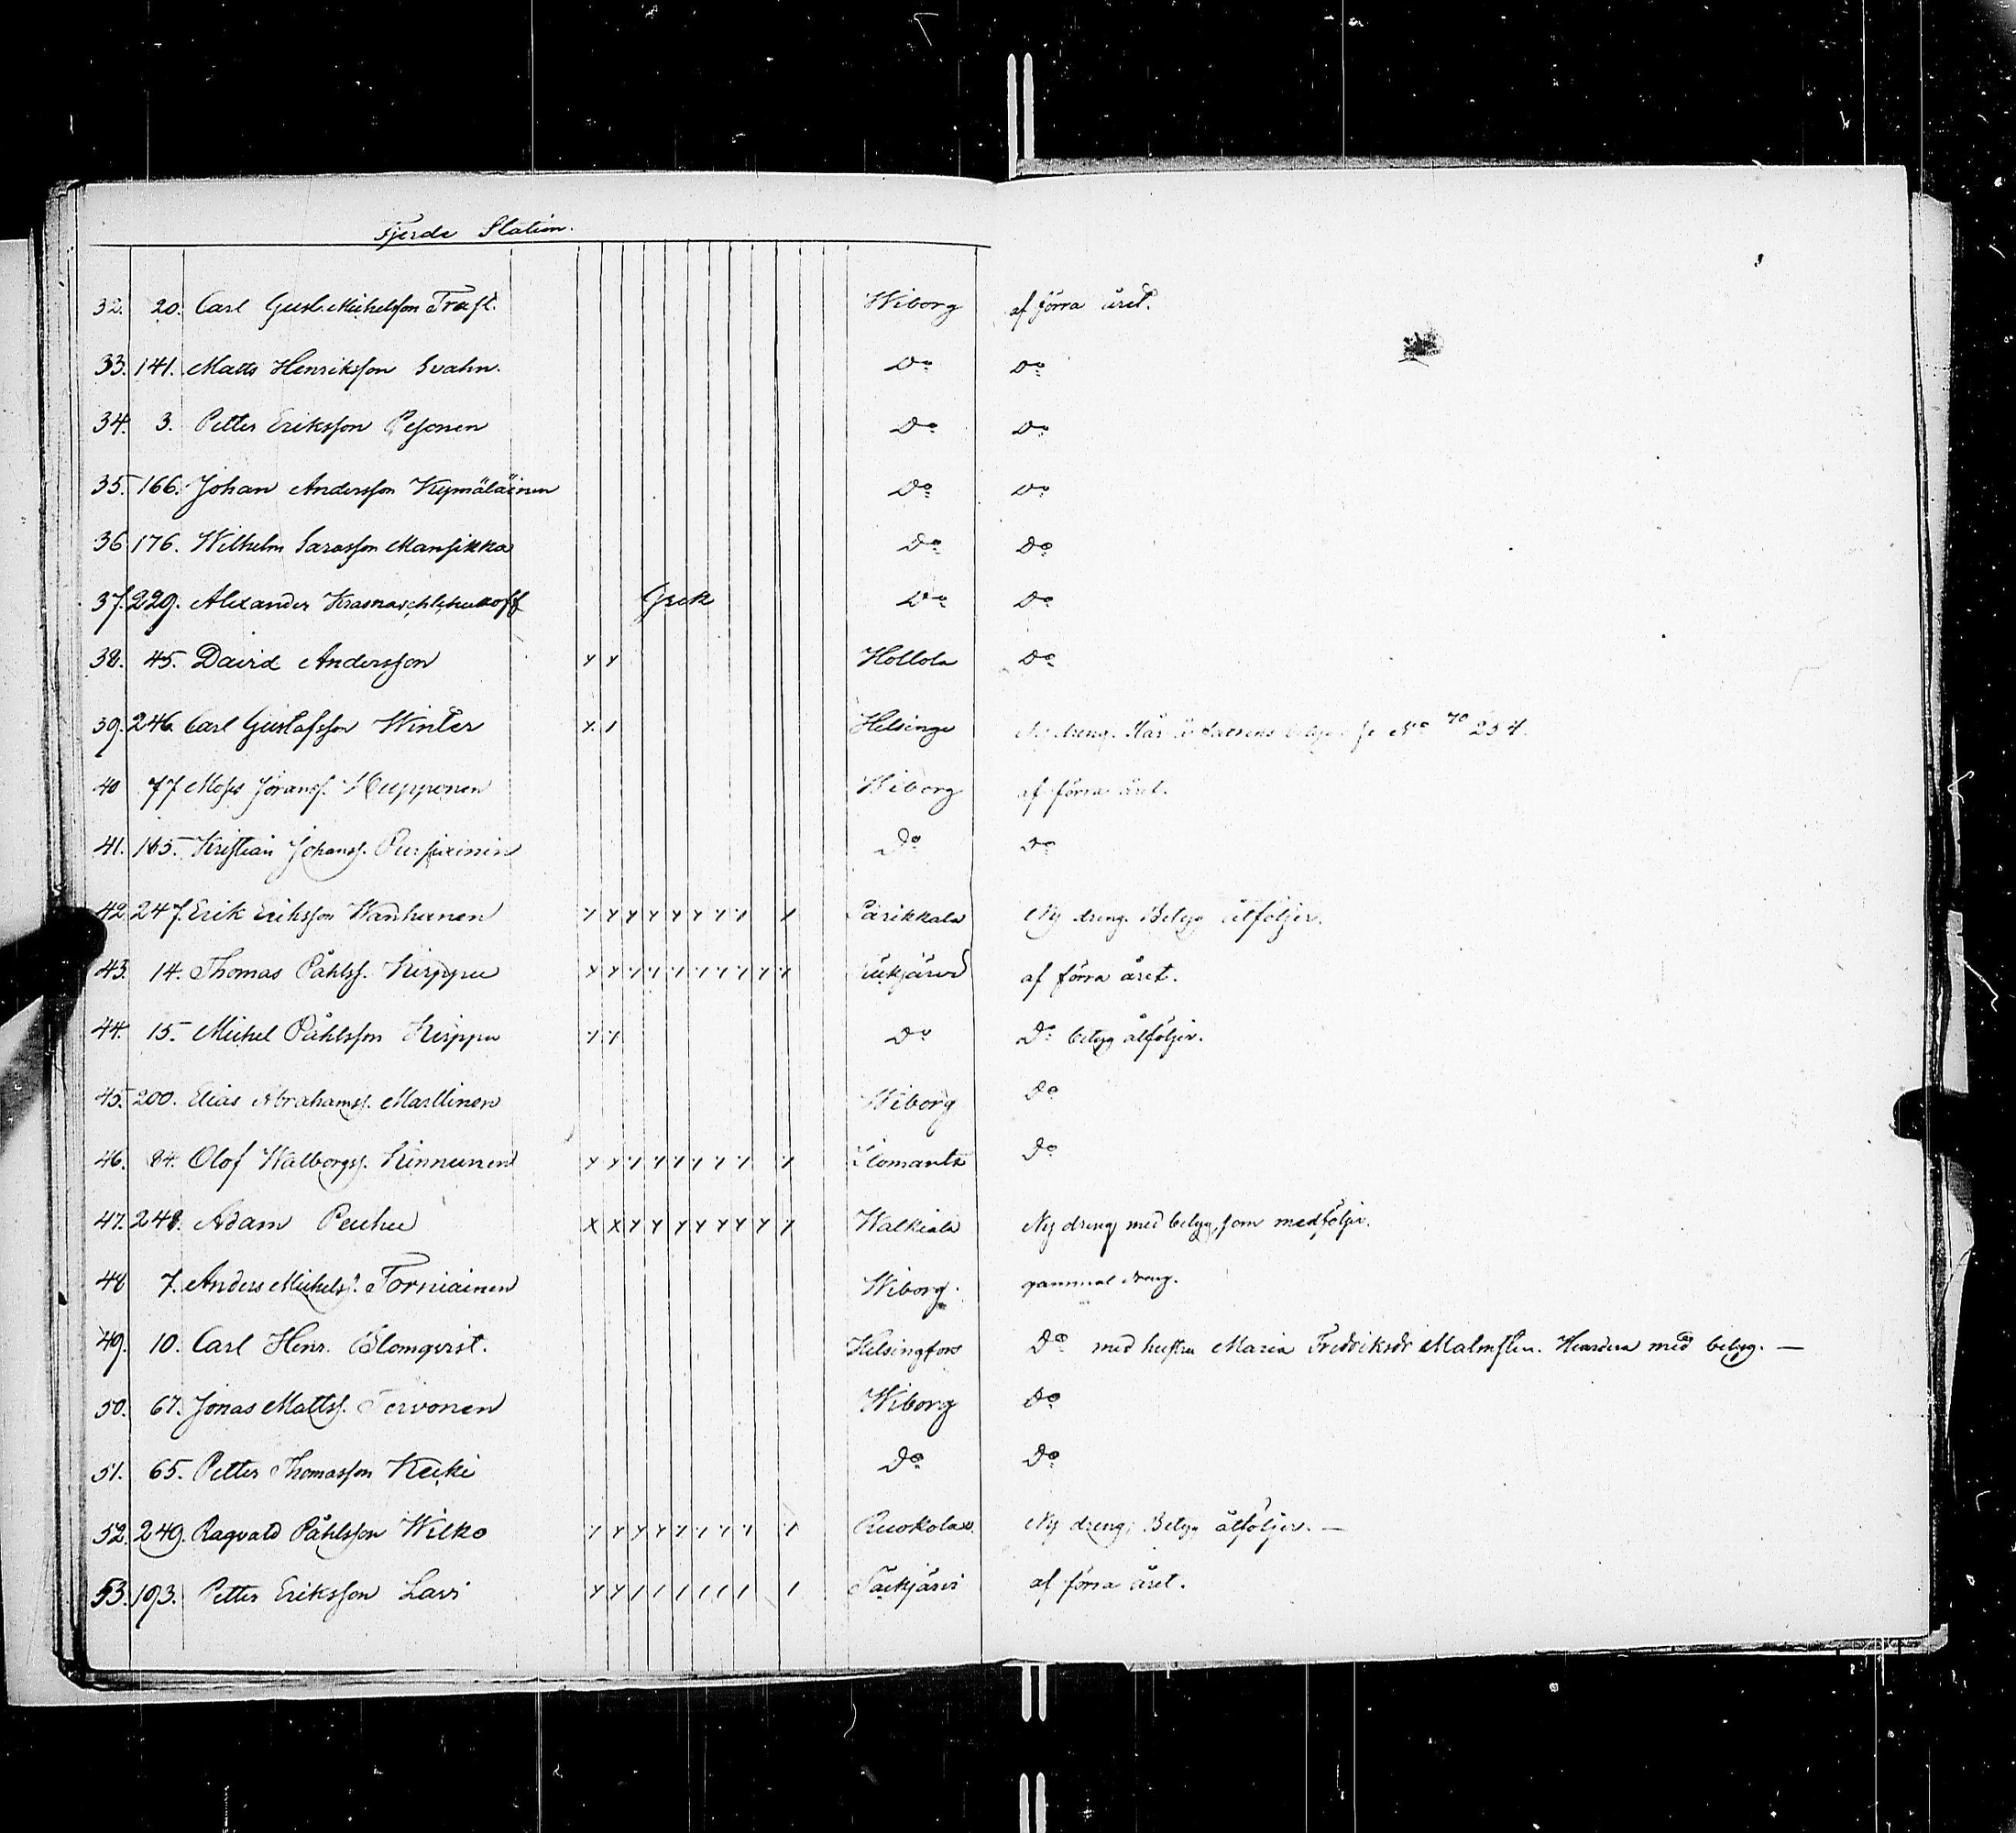 Fjerde Station.
32. 20. Carl Gust. Michelsson Traft. Wiborg af förra året.
33. 141. Matts Henriksson Svahn. Do Do
34. 3. Petter Eriksson Pesonen Do Do
35. 166. Johan Andersson Kymäläinen Do Do
36 176. Wilhelm Sarasson Mansikka Do Do
37. 229. Alexander Grek Do Do
38. 45. David Andersson Hollola Do
39. 246. Carl Gustafsson Winter Helsinge Ny dreng. No 70 254.
40 77 Moses Jöranss. Hupponen Wiborg af förra året.
41. 165. Kristian Johanss. Pursiainen Do Do
42. 247. Erik Eriksson Wanhanen Parikkala Ny dreng. Betyg åtföljer.
43. 14. Thomas Påhlss. Kirppu Säkjärvi af förra året.
44. 15. Michel Påhlsson Kirppu Do Do betyg åtföljer.
45. 200. Elias Abrahamss. Marttinen Wiborg Do
46. 84. Olof Walborgss. Kinnunen Ilomants Do
47. 248. Adam Peuhu Walkiala Ny dreng med betyg, som medföljer.
48 7. Anders Michelss. Torniainen Wiborg. gammal dreng.
49. 10. Carl Henr. Blomqvist. Helsingfors Do med hustru Maria Fredriksdr Malmsten. med betyg. —
50. 67. Jonas Mattss. Tervonen Wiborg Do
51. 65. Petter Thomasson Kuki Do Do
52. 249. Ragvald Påhlsson Wilko Ruokolax. Ny dreng; Betyg åtföljer. —
53. 193. Petter Eriksson Lavi Säkjärvi af förra året.